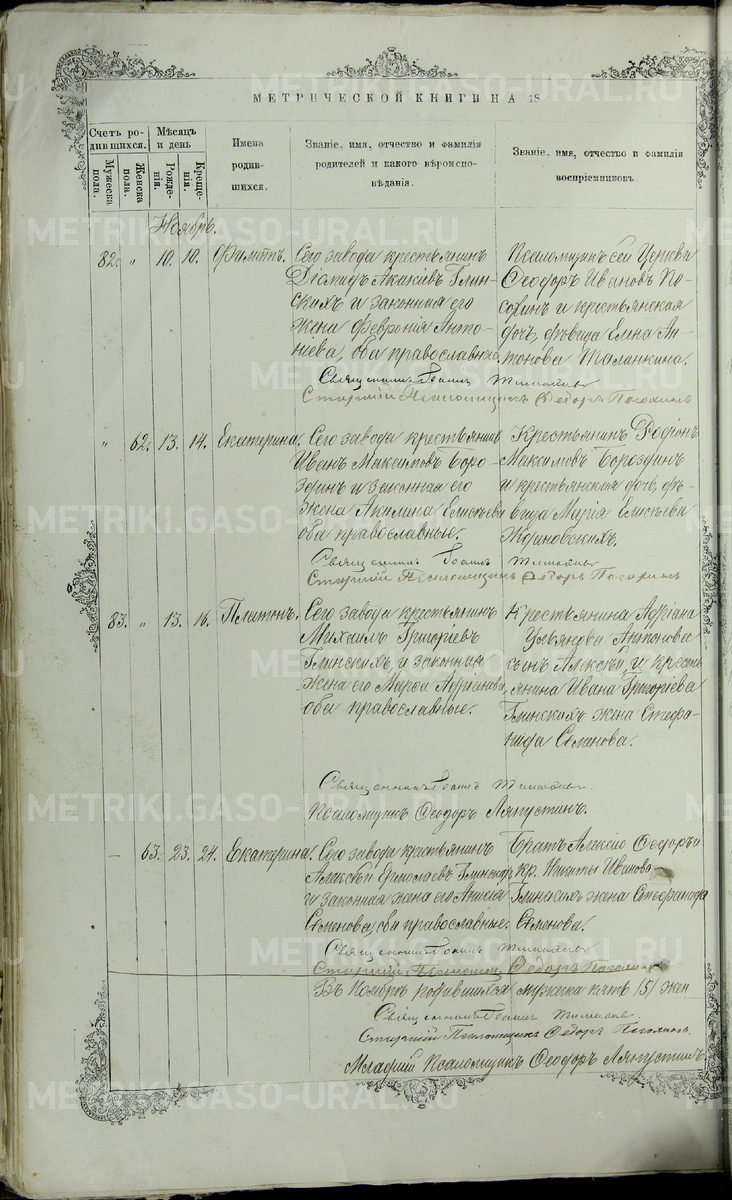 МЕТРИЧЕСКОЙ КНИГИ НА 18
Счетъ родившихся.
Мужеска пола.
Женска пола.
Мѣсяцъ и день
Рожденія.
Крещенія.
Имена родившихся.
Званіе, имя, отчество и фамилія родителей и какого вѣроисповѣданія.
Званіе, имя, отчество и фамилія воспріемниковъ.
Ноябрь.
82. „ 10. 10.
Сего завода крестьянинъ
Акакіевъ Глин-
скихъ и законная его
жена Февронія Анто-
ніева, оба православные.
Псаломщикъ сей Церкви
Ѳеодоръ Ивановъ По-
и крестьянская
дочь, дѣвица Елена Ан-
тонова Таланкина.
Священникъ Іоаннъ
Старшій Псаломщикъ Ѳедоръ
„ 62. 13. 14. Екатерина.
Сего завода крестьянинъ
Иванъ Максимовъ Боро-
здинъ и законная его
жена Акилина Елисѣева
оба православные.
Крестьянинъ Родіонъ
Максимовъ Бороздинъ
и крестьянская дочь, дѣ-
вица Марія Елисѣева
Ждановскихъ.
Священникъ Іоаннъ
Старшій Псаломщикъ Ѳедоръ
83. „ 13. 16. Платонъ.
Сего завода крестьянинъ
Михаилъ Григоріевъ
Глинскихъ, и законная
жена его Марѳа Адріанова,
оба православные.
Крестьянина Адріана
Ульянова Антонова
сынъ Алексѣй, и кресть
янина Ивана Григоріева
Глинскихъ жена Стефа-
нида Семенова.
Священникъ Іоаннъ
Псаломщикъ Ѳеодоръ Ляпустинъ.
– 63. 23. 24. Екатерина.
Сего завода крестьянинъ
Алексѣй Ермолаевъ Глинскихъ
и законная жена его
Семенова, оба православные.
Братъ Алексія Ѳеодоръ и
кр. Никиты Иванова
Глинскихъ жена Стефанида
Семенова.
Священникъ Іоаннъ
Старшій Псаломщикъ Ѳедоръ
Въ Ноябрѣ родившихся мужеска пять /5/ жен
Священникъ Іоаннъ
Старшій Псаломщикъ Ѳедоръ
Младшій Псаломщикъ Ѳеодоръ Ляпустинъ.
METRIKI.GASO-URAL.RU